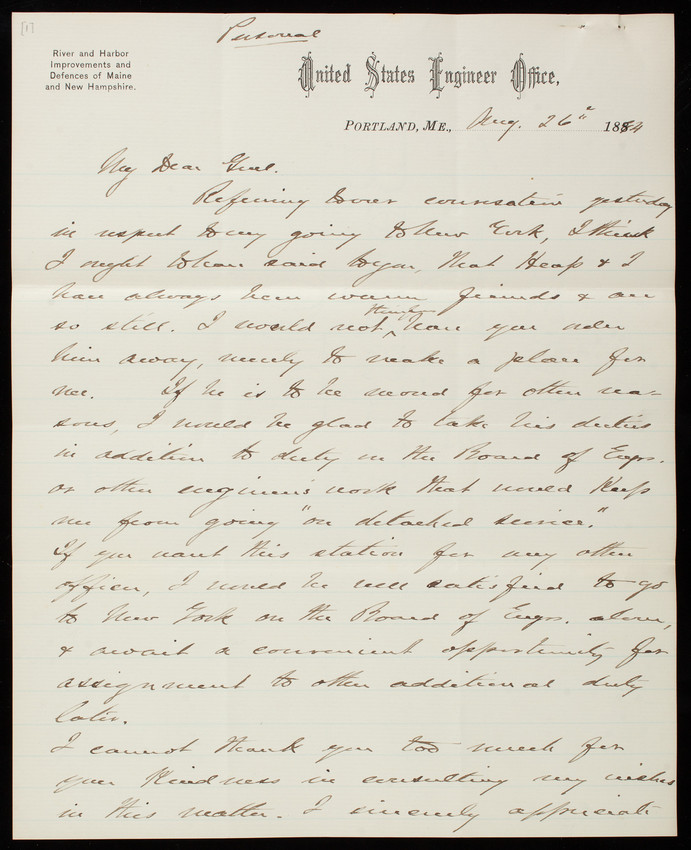 [1]
Personal
River and Harbor
Improvements and
Defences of Maine
and New Hampshire.
United States Engineer Office,
PORTLAND, ME., Aug. 26th 1884
My Dear Genl.
Referring to our conversation yesterday
in respect to my going to New York, I think
I ought to have said to you, that Heap & I
have always been warm friends & are
so still. I would not, therefore, have you order
him away, merely to make a place for
me. If he is to be moved for other rea-
sons, I would be glad to take his duties
in addition to duty on the Board of Engrs.
or other engineer's work that would keep
me from going "on detached service."
If you want this station for any other
officer, I would be well satisfied to go
to New York on the Board of Engrs. alone,
& await a convenient opportunity for
assignment to other additional duty
later.
I cannot thank you too much for
your kindness in consulting my wishes
in this matter. I sincerely appreciate